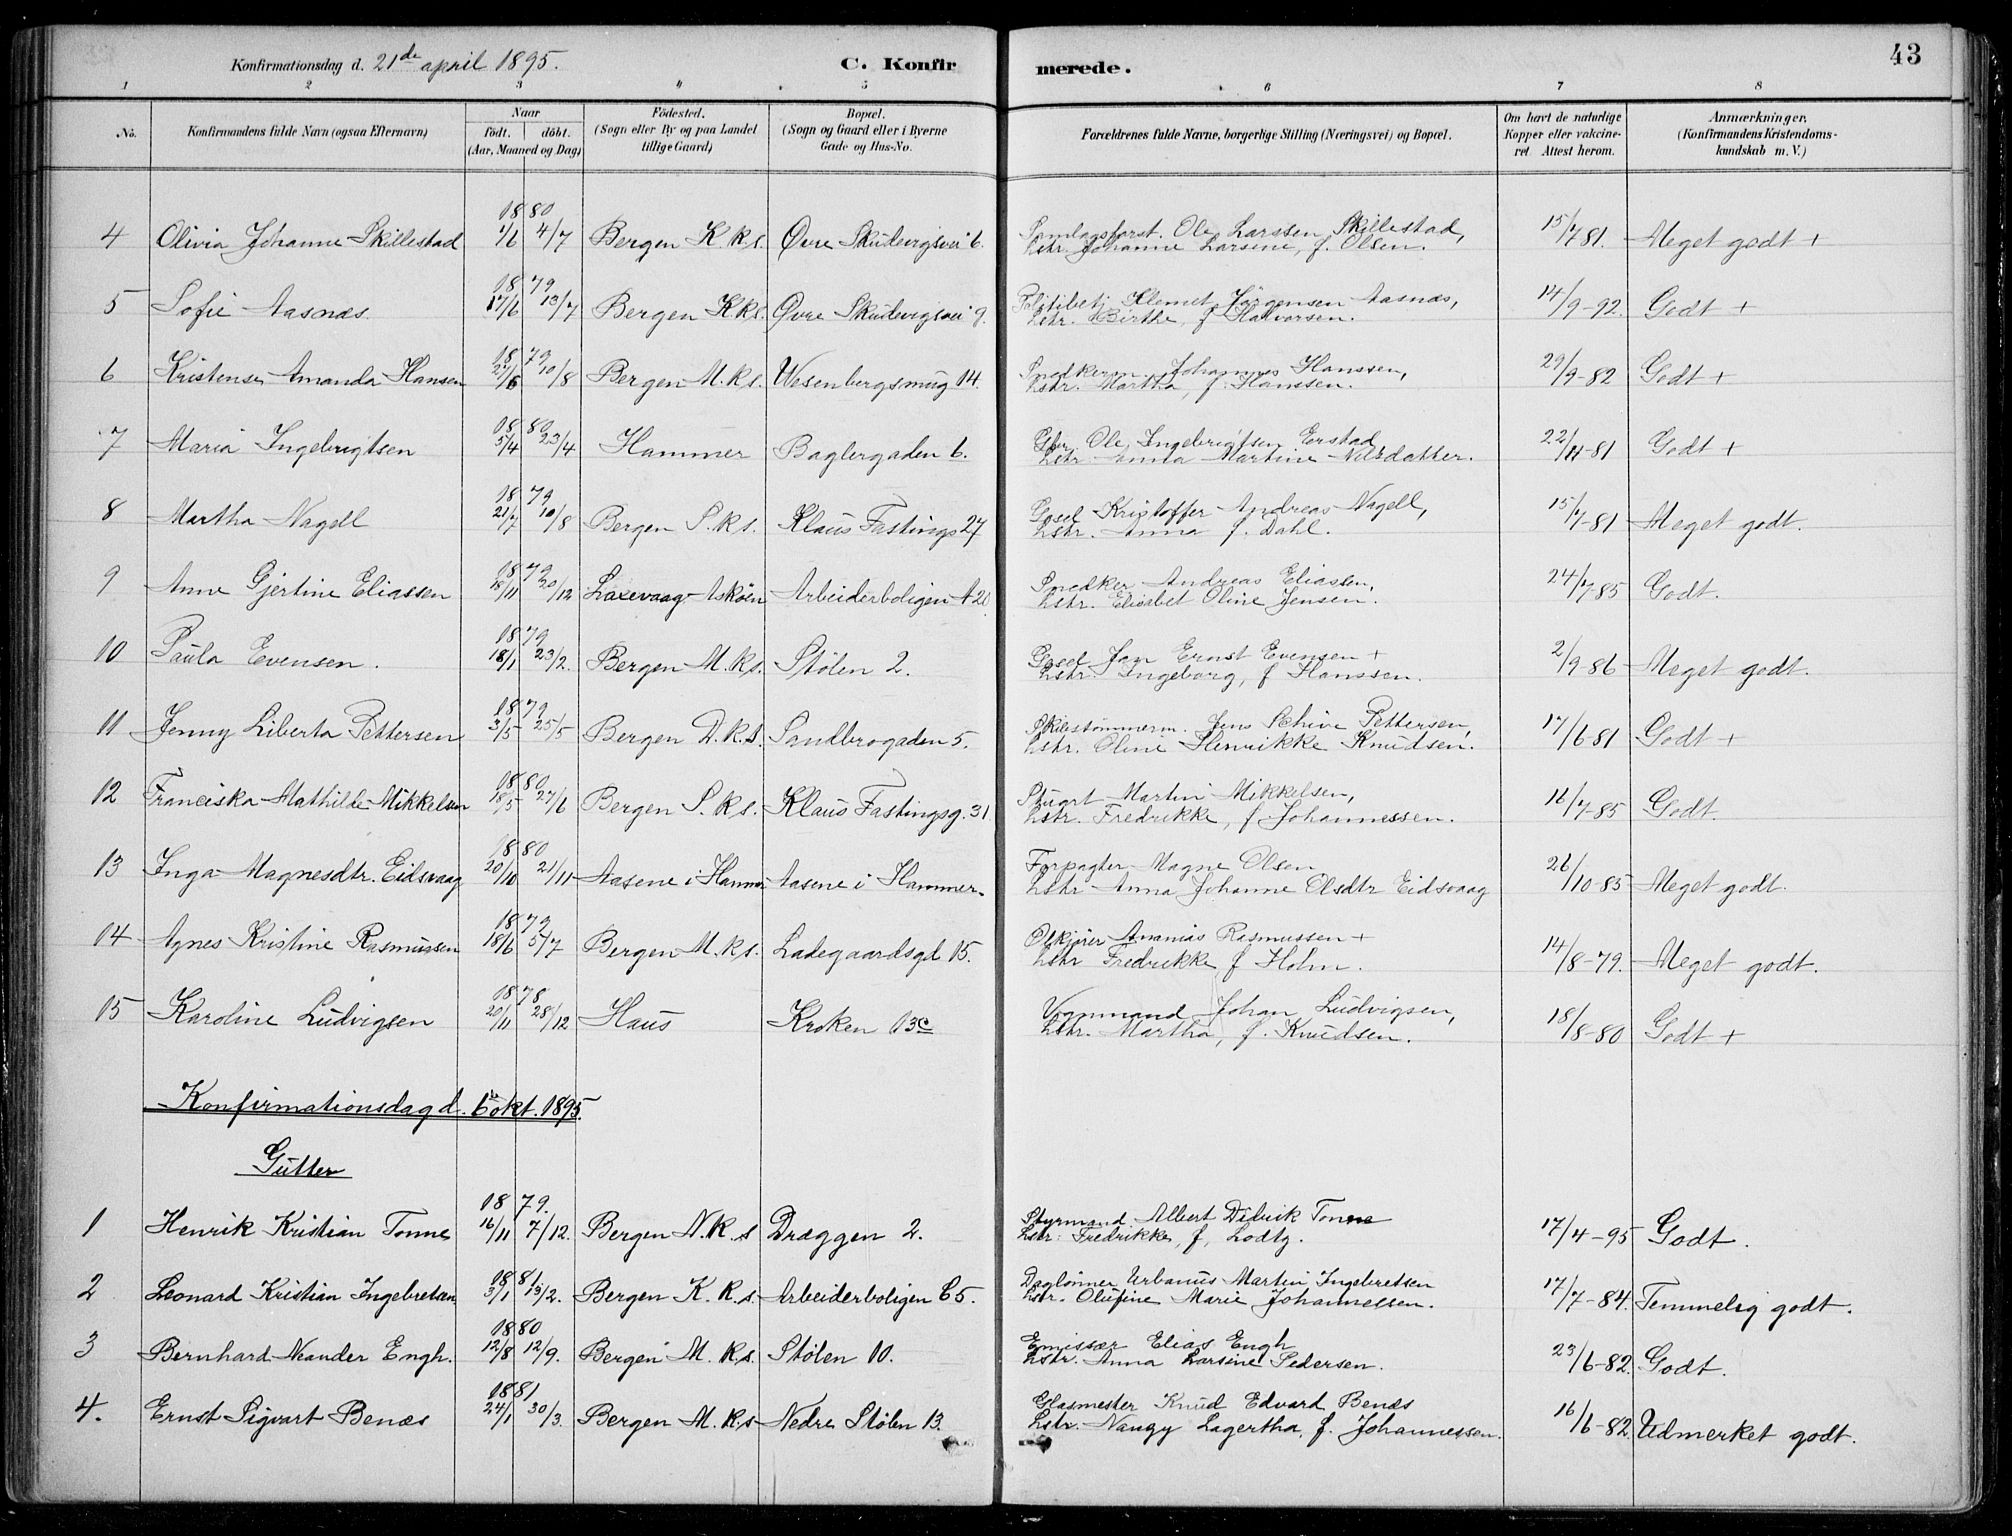 43
Konfirmationsdag d. 21de april 1895. C. Konfirmerede.
1 2 3 4 5 6 7 8
No. Konfirmandens fulde Navn (ogsaa Efternavn) Naar födt. döbt. (Aar, Maaned og Dag) Födested. (Sogn eller By og paa Landet tillige Gaard) Bopæl. (Sogn og Gaard eller i Byerne Gade og Hus-No. Forældrenes fulde Navne, borgerlige Stilling (Næringsvei) og Bopæl. Om havt de naturlige Kopper eller vakcineret Attest herom. Anmærkninger. (Konfirmandens Kristendomskundskab m. V.)
1880
4 Olivia Johanne Skillestad 1/6 4/7 Bergen K.k.s. Øvre Skudevigsvei 6. Samlagsforst. Ole Larssen Skillestad, 15/7 81. Meget godt +
hstr. Johanne Larsine, f. Olsen.
1879
5 Sofie Aasnæs 17/6 13/7 Bergen K.k.s. Øvre Skudevigsvei 9. Politibetj. Klemet Jörgensen Aasnæs, 14/9-92. Godt +
hstr. Birthe, f. Halvorsen.
1879
6 Kristense Amanda Hansen 27/6 10/8 Bergen M.k.s. Wesenbergsmug 14. Snedkerm. Johannes Hanssen, 29/9-82 Godt +
hstr. Martha, f. Hanssen.
1880
7 Maria Ingebrigtsen 5/4 23/4 Hammer Baglergaden 6. Gbr. Ole Ingebrigtsen Erstad 22/11-81 Godt +
hstr. Anna Martine Nilsdatter.
1879
8 Martha Nagell 21/7 10/8 Bergen S.k.s. Klaus Fastings 27 Gesel Kristoffer Andreas Nagell, 15/7-81 Meget godt.
hstr. Anna f. Dahl.
1879
9 Anne Gjertine Eliassen 18/11 20/12 Laxevaag Askøen Arbeiderboligen A 20 Snedker Andreas Eliassen, 24/7-85 Godt.
hstr. Elisabet Oline Jensen.
1879
10 Paula Evensen. 18/1 23/2. Bergen M.k.s. Stølen 2. Gesel Jan Ernst Evensen + 2/9-86 Meget godt.
hstr. Ingeborg, f Hanssen.
1879
11 Jenny Liberta Pettersen 3/5 25/5 Bergen D.k.s. Sandbrogaden 5. Skibstömmerm. Jens Schive Pettersen, 17/6-81 Godt +
hstr. Oline Henrikke Knudsen.
1880
12 Franciska Mathilde Mikkelsen 18/5 27/6 Bergen S.k.s. Klaus Fastingsg. 31 Stuart Martin Mikkelsen, 16/7-85 Godt.
hstr. Fredrikke, f Johannessen.
1880
13 Inga Magnesdtr. Eidsvaag 20/10 21/11 Aasene i Hammer Aasene i Hammer. Forpagter Magne Olsen 26/10-85 Meget godt.
hstr Anna Johanne Olsdtr Eidsvaag
1879
14 Agnes Kristine Rasmussen 18/6 5/7 Bergen M.k.s. Ladegaardsgd 15. Ølkjører Ananias Rasmussen + 14/8-79. Meget godt.
hstr Fredrikke f Holm.
1878
15 Karoline Ludvigsen 20/11 28/12 Haus Kroken 13c Vognmand Johan Ludvigsen, 18/8-80 Godt +
hstr. Martha, f. Knudsen.
Konfirmationsdag d. 6te okt. 1895.
Gutter
1879.
1 Henrik Kristian Tonne 16/11 7/12. Bergen N.k.s Dræggen 2. Styrmand Albert Didrik Tonne 17/4-95 Godt.
hstr. Fredrikke, f. Lodtz.
1881
2 Leonard Kristian Ingebretsen 3/1 13/2. Bergen K.k.s. Arbeiderboligen C 5. Daglønner Urbanus Martin Ingebretsen 17/7-84. Temmelig godt.
hstr. Olufine Marie Johannessen.
1880
3 Bernhard Neander Engh. 12/8 12/9. Bergen M.k.s. Stølen 10. Emissær Elias Engh 23/6-82. Godt.
hstr. Anna Larsine Pedersen.
1881
4. Ernst Sigvart Benæs 24/1 30/3. Bergen M.k.s Nedre Stølen 13. Glasmester Knud Edvard Benæs 16/6-82. Udmerket godt.
hstr. Nangy Lagertha, f. Johannessen.